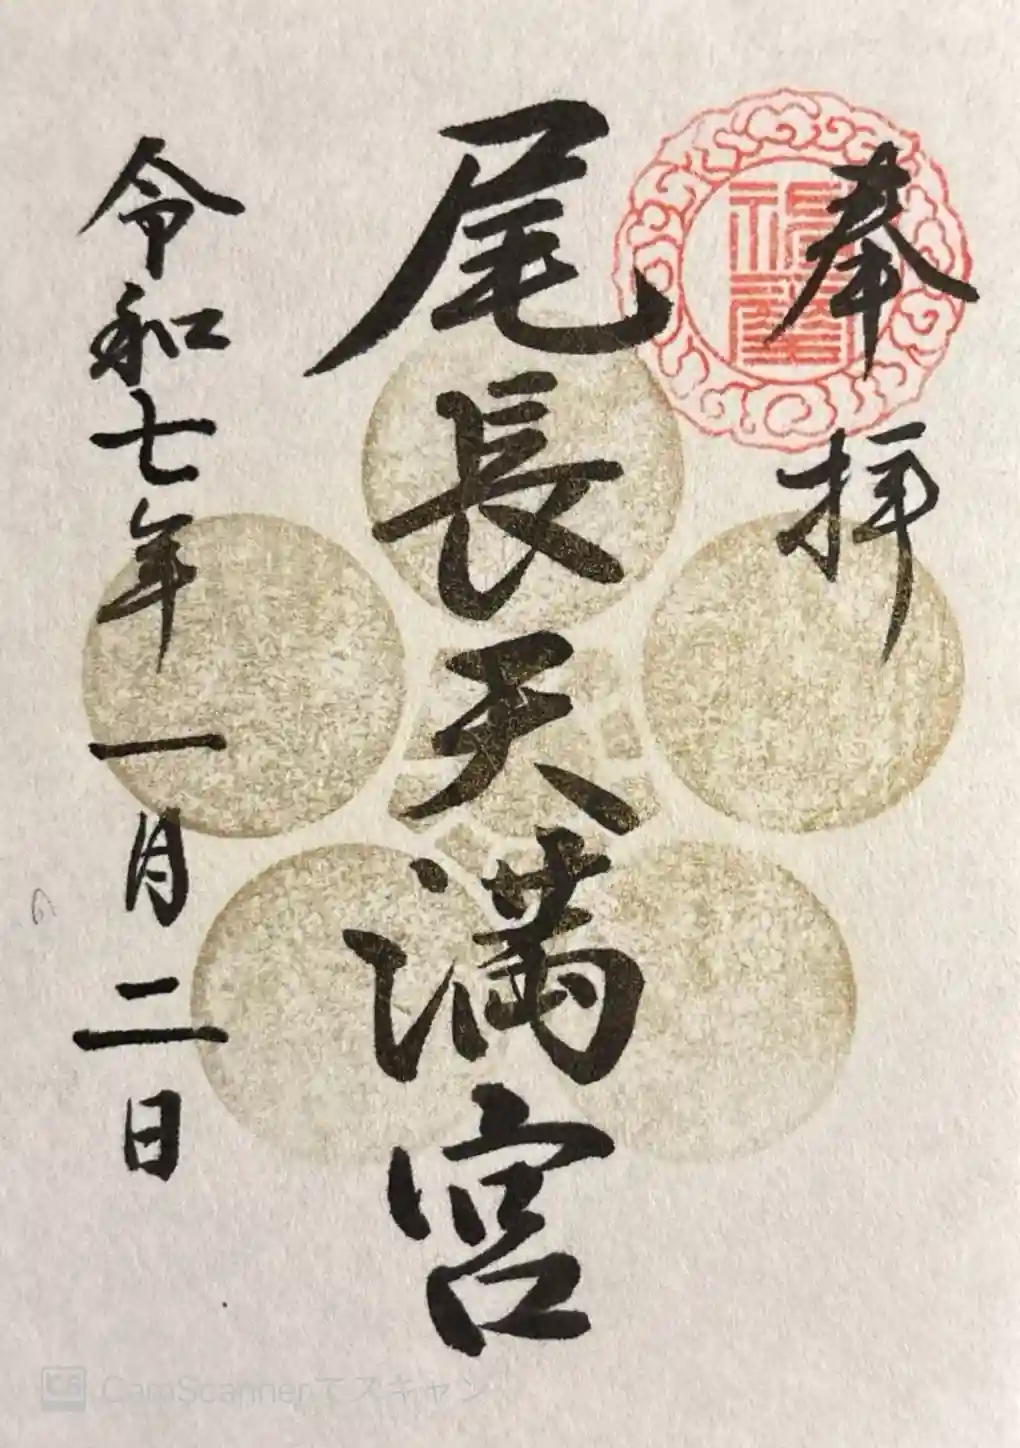 奉拝
尾長天満宮
令和七年一月二日
CS CamScannerでスキャン